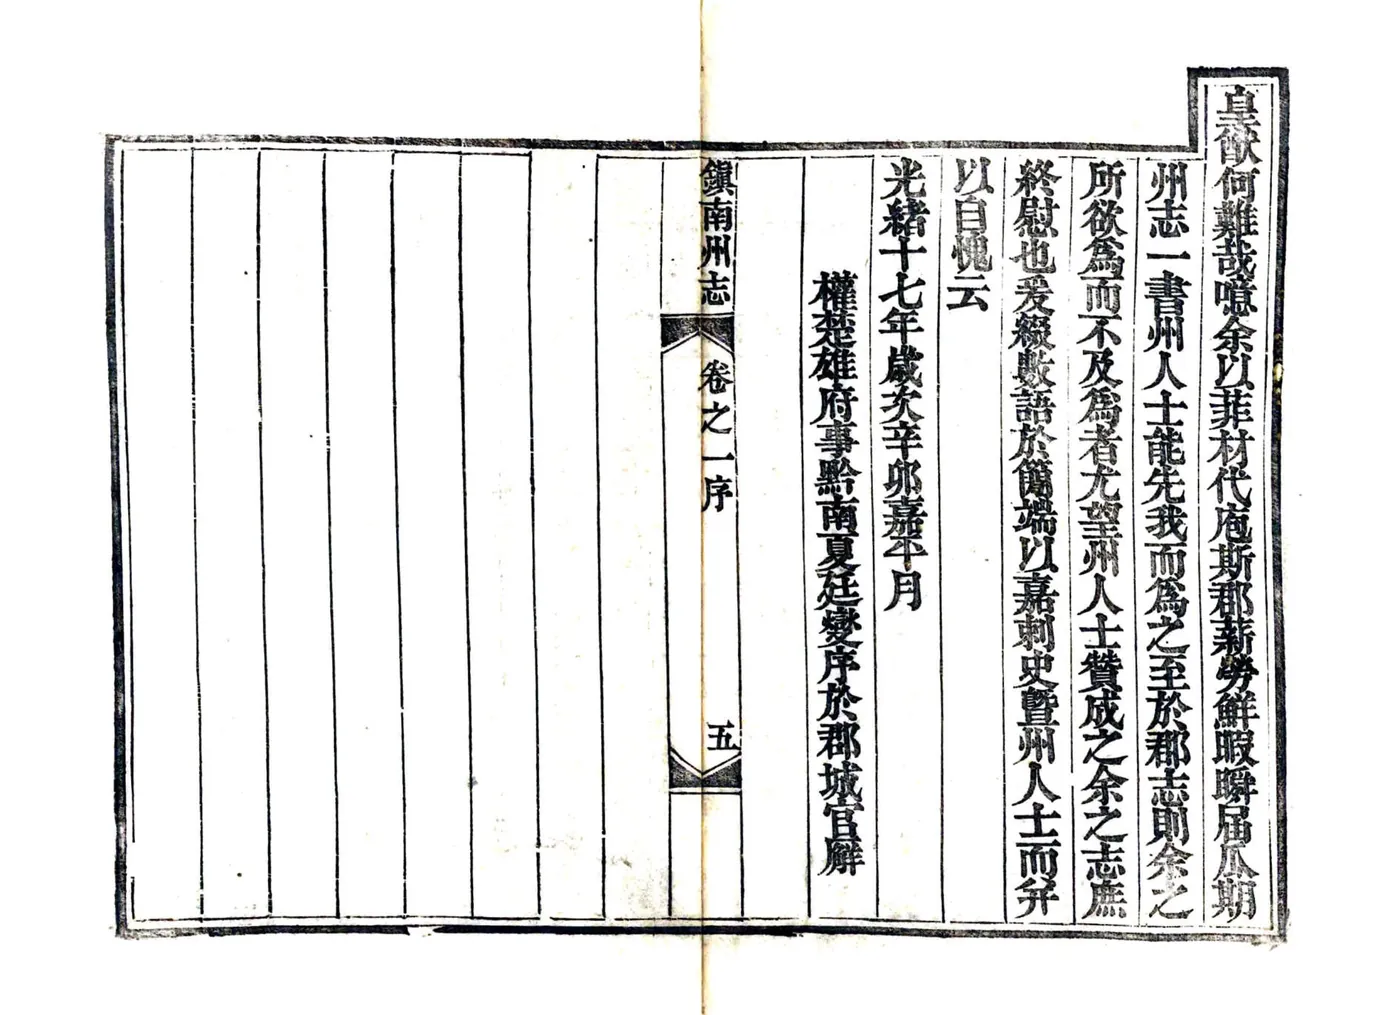 皇猷何難哉噫余以菲材代庖斯郡薪勞鮮暇瞬届瓜期
州志一書州人士能先我而爲之至於郡志則余之
所欲爲而不及爲者尤望州人士贊成之余之志庶
終慰也爰綴數語於簡端以嘉刺史曁州人士而并
以自愧云
光緒十七年歲次辛卯嘉平月
權楚雄府事黔南夏廷燮序於郡城官廨
鎭南州志
卷之一序
五